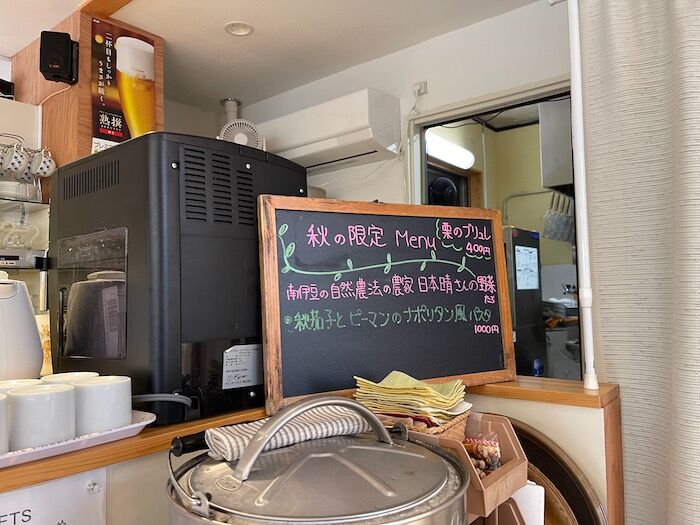 二杯目もしっかり
うまさが続く。
熟撰
秋の限定 Menu
栗のブリュレ
400円
南伊豆の自然農法の農家 日本晴さんの野菜
たち
秋茄子と ピーマンのナポリタン風 パスタ
1000円
ETS